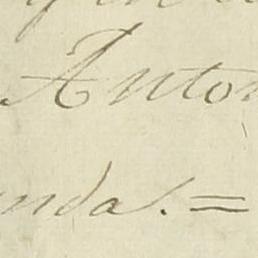 Anton
nda. =